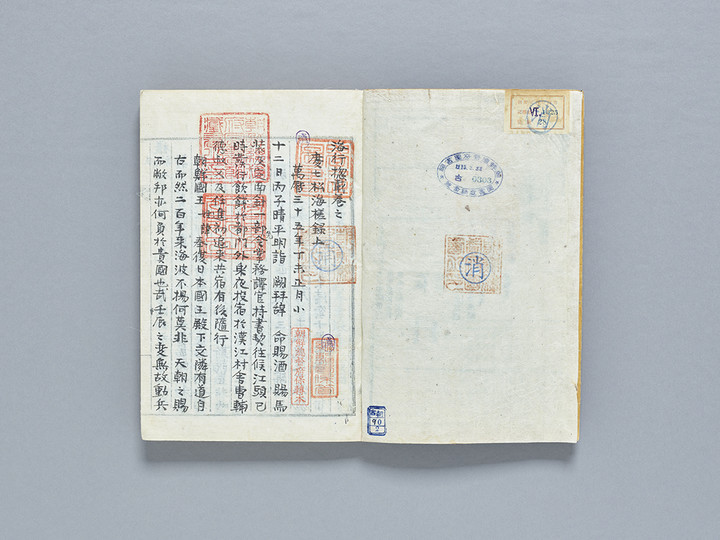 海行摠載卷之
慶七松海槎錄上
萬曆三十五年丁未正月小
十二日丙子晴平明詣 闕拜辭 命賜酒 賜馬
南針一部令掌務譯官持書契往候江頭巳
時發行飮餞於都門外 夜投宿於漢江村舍曹輔
德 及任 追來共宿有後隨行
朝鮮國王姓諱 奉復日本國王殿下交隣有道自
古而然二百年來海波不揚何莫非 天朝之賜
而敝邦亦何負於貴國也哉壬辰之變無故動兵
消
消
90
2